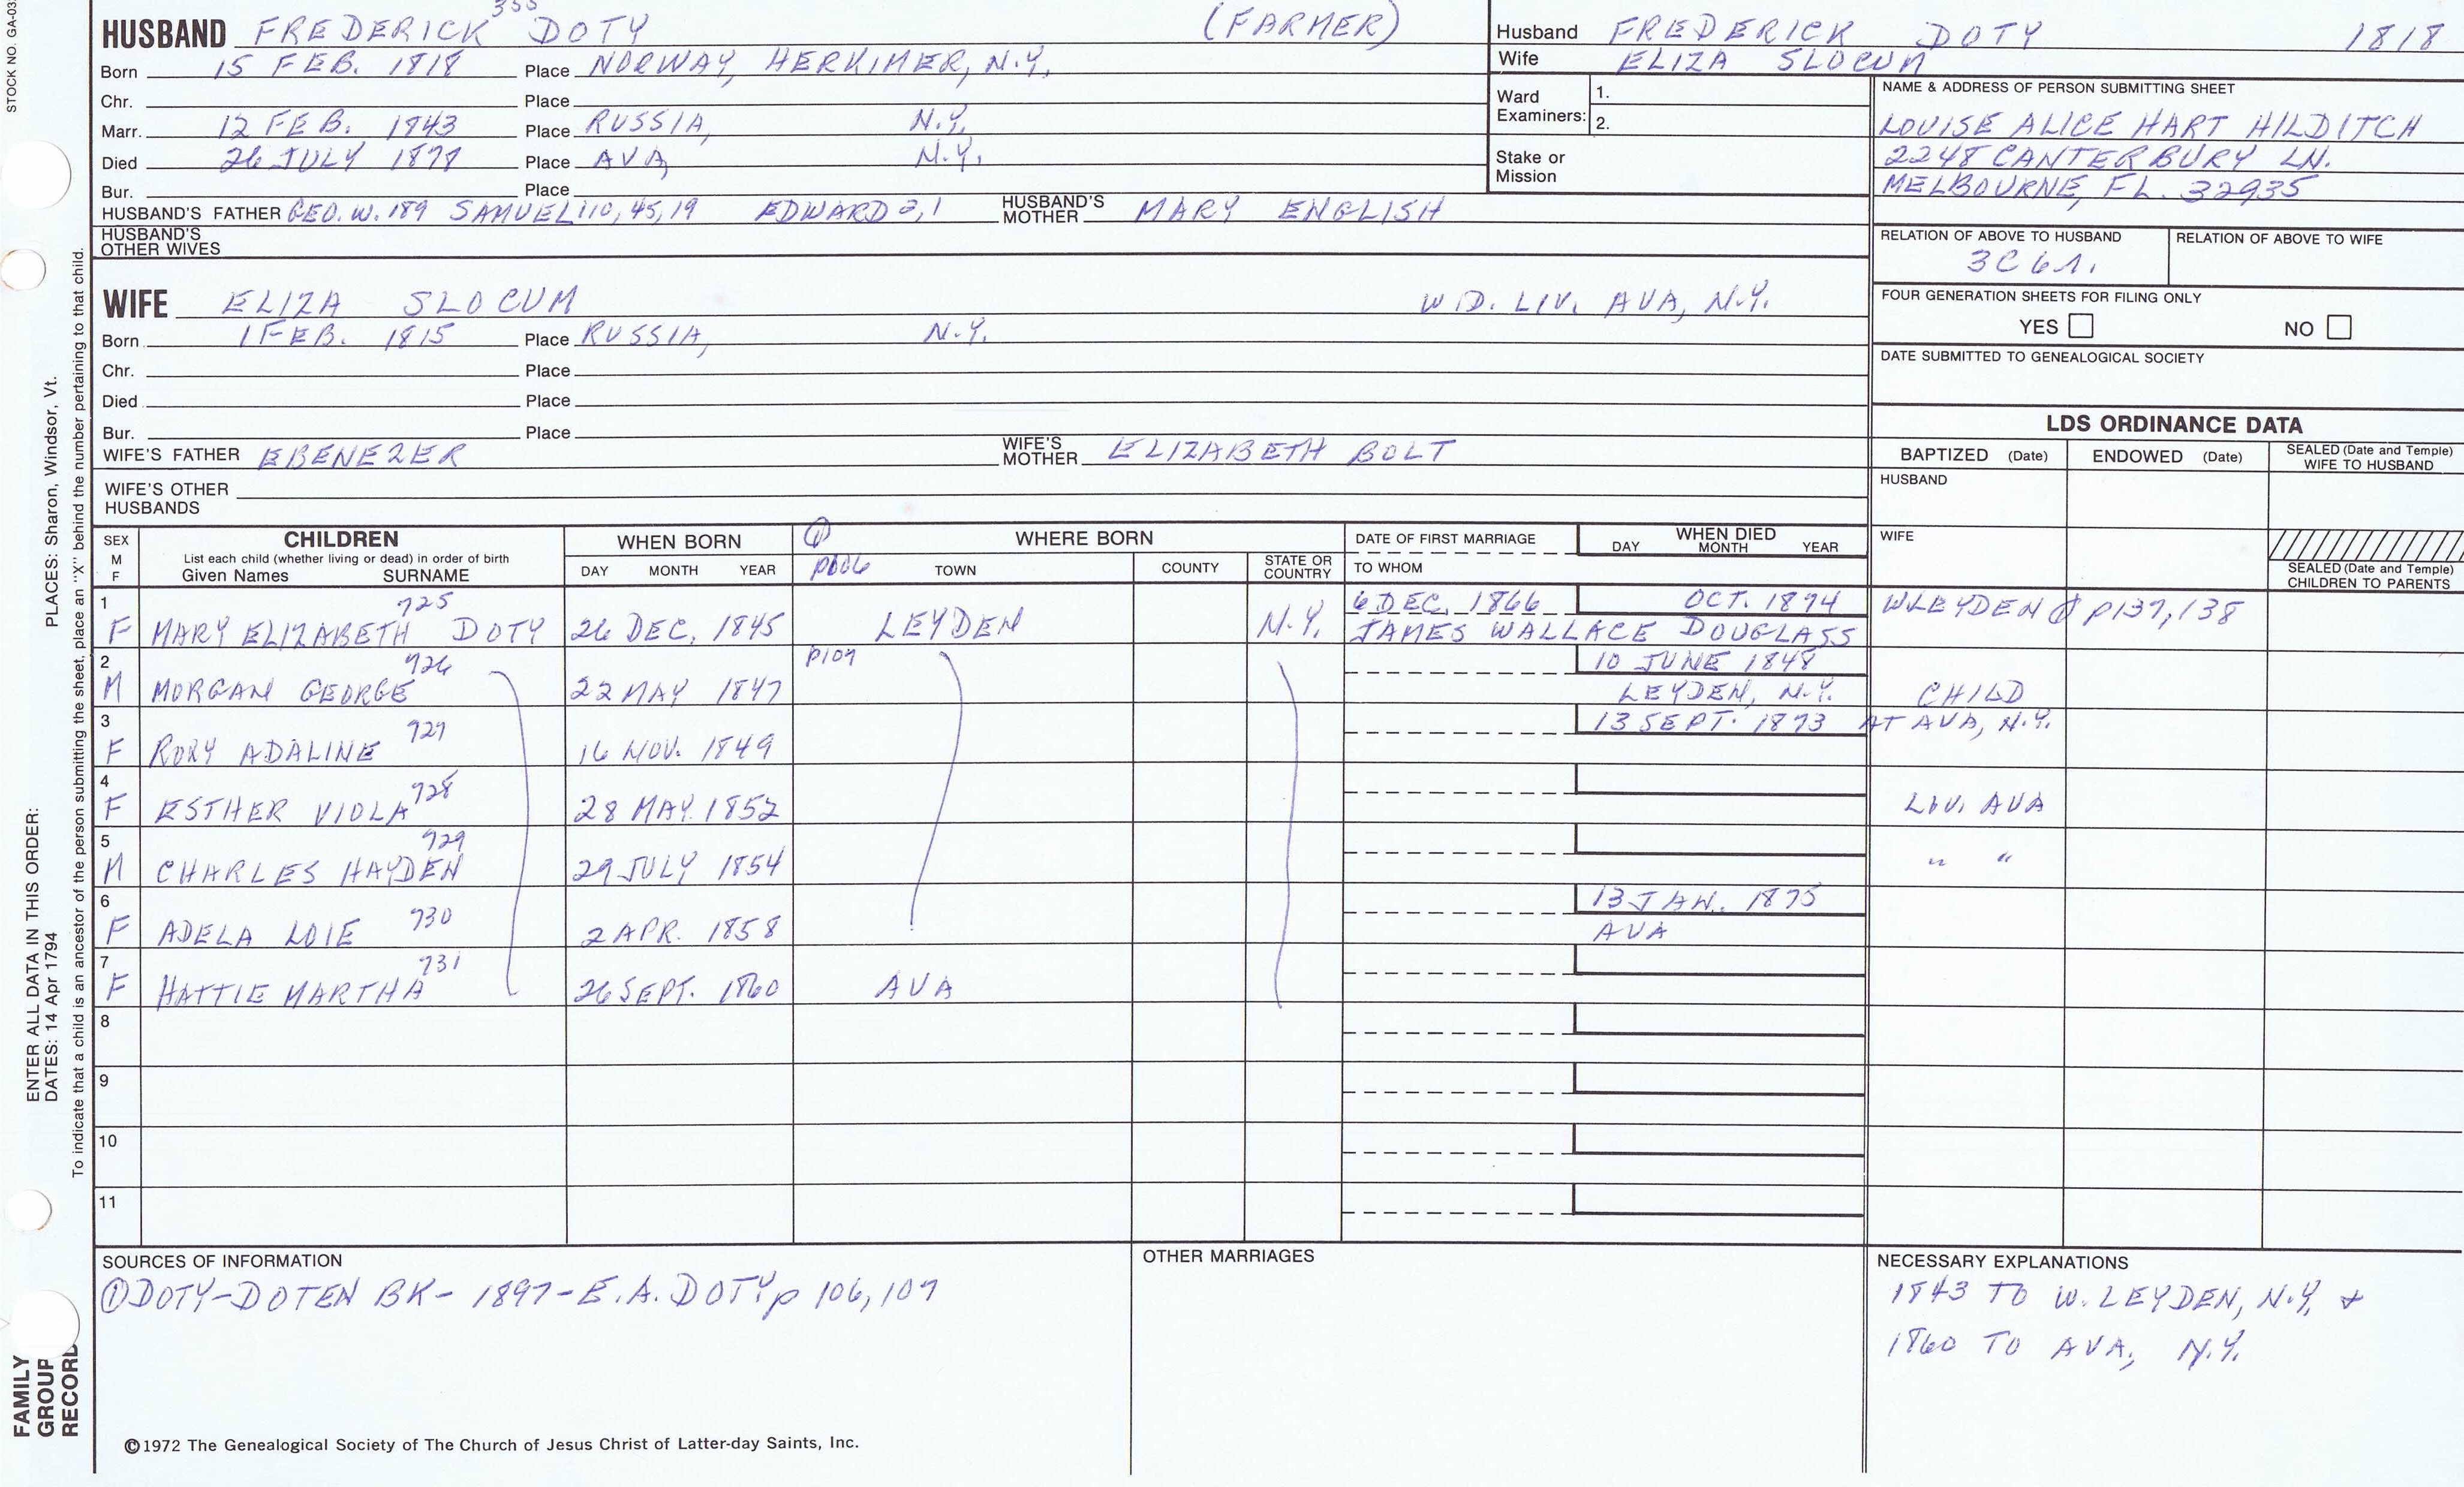 STOCK NO. GA-03
355
HUSBAND FREDERICK DOTY (FARMER)
Born 15 FEB. 1818 Place NORWAY, HERKIMER, N.Y.
Chr. Place
Marr. 12 FEB. 1843 Place RUSSIA, N.Y.
Died Place AVA, N.Y.
Bur. Place
HUSBAND'S FATHER GEO. W. 189 SAMUEL 110, 45, 19 EDWARD 2, 1 HUSBAND'S MOTHER MARY ENGLISH
HUSBAND'S OTHER WIVES
WIFE ELIZA SLOCUM WID. LIV. AVA, N.Y.
Born 1 FEB. 1815 Place RUSSIA, N.Y.
Chr. Place
Died Place
Bur. Place
WIFE'S FATHER EBENEZER WIFE'S MOTHER ELIZABETH BOLT
WIFE'S OTHER HUSBANDS
Husband FREDERICK DOTY 1818
Wife ELIZA SLOCUM
Ward Examiners: 1.
2.
Stake or Mission
NAME & ADDRESS OF PERSON SUBMITTING SHEET
LOUISE ALICE HART HILDITCH
2248 CANTERBURY LN.
MELBOURNE, FL. 32935
RELATION OF ABOVE TO HUSBAND RELATION OF ABOVE TO WIFE
3C
FOUR GENERATION SHEETS FOR FILING ONLY
YES NO
DATE SUBMITTED TO GENEALOGICAL SOCIETY
LDS ORDINANCE DATA
BAPTIZED (Date) ENDOWED (Date) SEALED (Date and Temple) WIFE TO HUSBAND
HUSBAND
WIFE
SEALED (Date and Temple) CHILDREN TO PARENTS
SEX M F CHILDREN WHEN BORN ① WHERE BORN DATE OF FIRST MARRIAGE WHEN DIED
List each child (whether living or dead) in order of birth
Given Names SURNAME DAY MONTH YEAR P106 TOWN COUNTY STATE OR COUNTRY TO WHOM DAY MONTH YEAR
1 725 6 DEC. 1866 OCT. 1894
F MARY ELIZABETH DOTY 26 DEC. 1845 LEYDEN N.Y. JAMES WALLACE DOUGLASS W LEYDEN p137, 138
2 726 P107 10 JUNE 1848
M MORGAN GEORGE 22 MAY 1847 LEYDEN, N.Y. CHILD
3 727 13 SEPT. 1873 AT AVA, N.Y.
F RORY ADALINE 16 NOV. 1849
4 728
F ESTHER VIOLA 28 MAY 1852 LIV. AVA
5 729
M CHARLES HAYDEN 29 JULY 1854 " "
6 730 13 JAN. 1875
F ADELA LOIE 2 APR. 1858 AVA
7 731
F HATTIE MARTHA 26 SEPT. 1860 AVA
8
9
10
11
SOURCES OF INFORMATION
① DOTY-DOTEN BK- 1897-E.A. DOTY p 106, 107
OTHER MARRIAGES
NECESSARY EXPLANATIONS
1843 TO W. LEYDEN, N.Y. +
1860 TO AVA, N.Y.
©1972 The Genealogical Society of The Church of Jesus Christ of Latter-day Saints, Inc.
FAMILY
GROUP
RECORD
ENTER ALL DATA IN THIS ORDER:
DATES: 14 Apr 1794 PLACES: Sharon, Windsor, Vt.
To indicate that a child is an ancestor of the person submitting the sheet, place an "X" behind the number pertaining to that child.